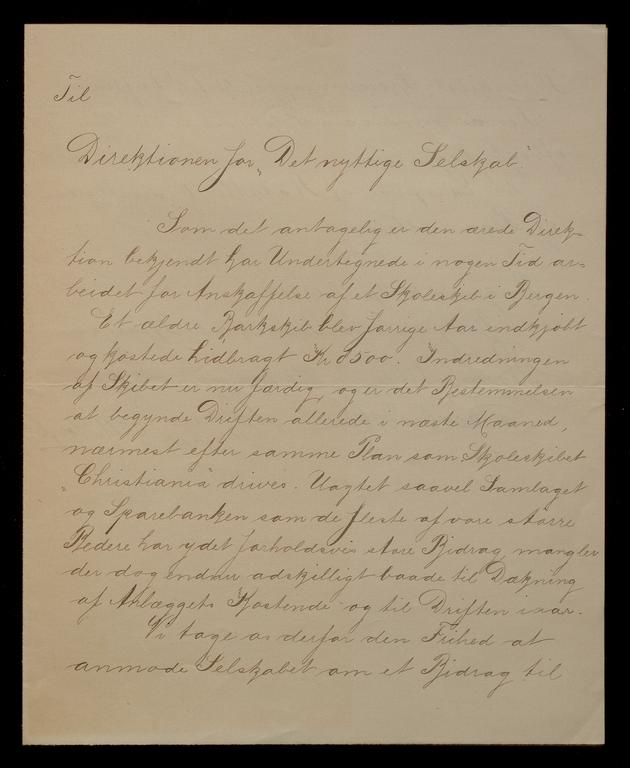 Til
Direktionen for „Det nyttige Selskab".
Som det antagelig er den ærede Direk-
tion bekjendt har Undertegnede i nogen Tid ar-
beidet for Anskaffelse af et Skoleskib i Bergen.
Et ældre Barkskib blev forrige Aar indkjøbt
og kostede hidbragt Kr 8500. Indredningen
af Skibet er nu færdig, og er det Bestemmelsen
at begynde Driften allerede i næste Maaned,
nærmest efter samme Plan som Skoleskibet
„Christiania" drives. Uagtet saavel Samlaget
og Sparebanken som de fleste af vore større
Redere har ydet forholdsvis store Bidrag, mangler
der dog endnu adskilligt baade til Dækning
af Anlæggets Kostende og til Driften iaar.
Vi tage os derfor den Frihed at
anmode Selskabet om et Bidrag til